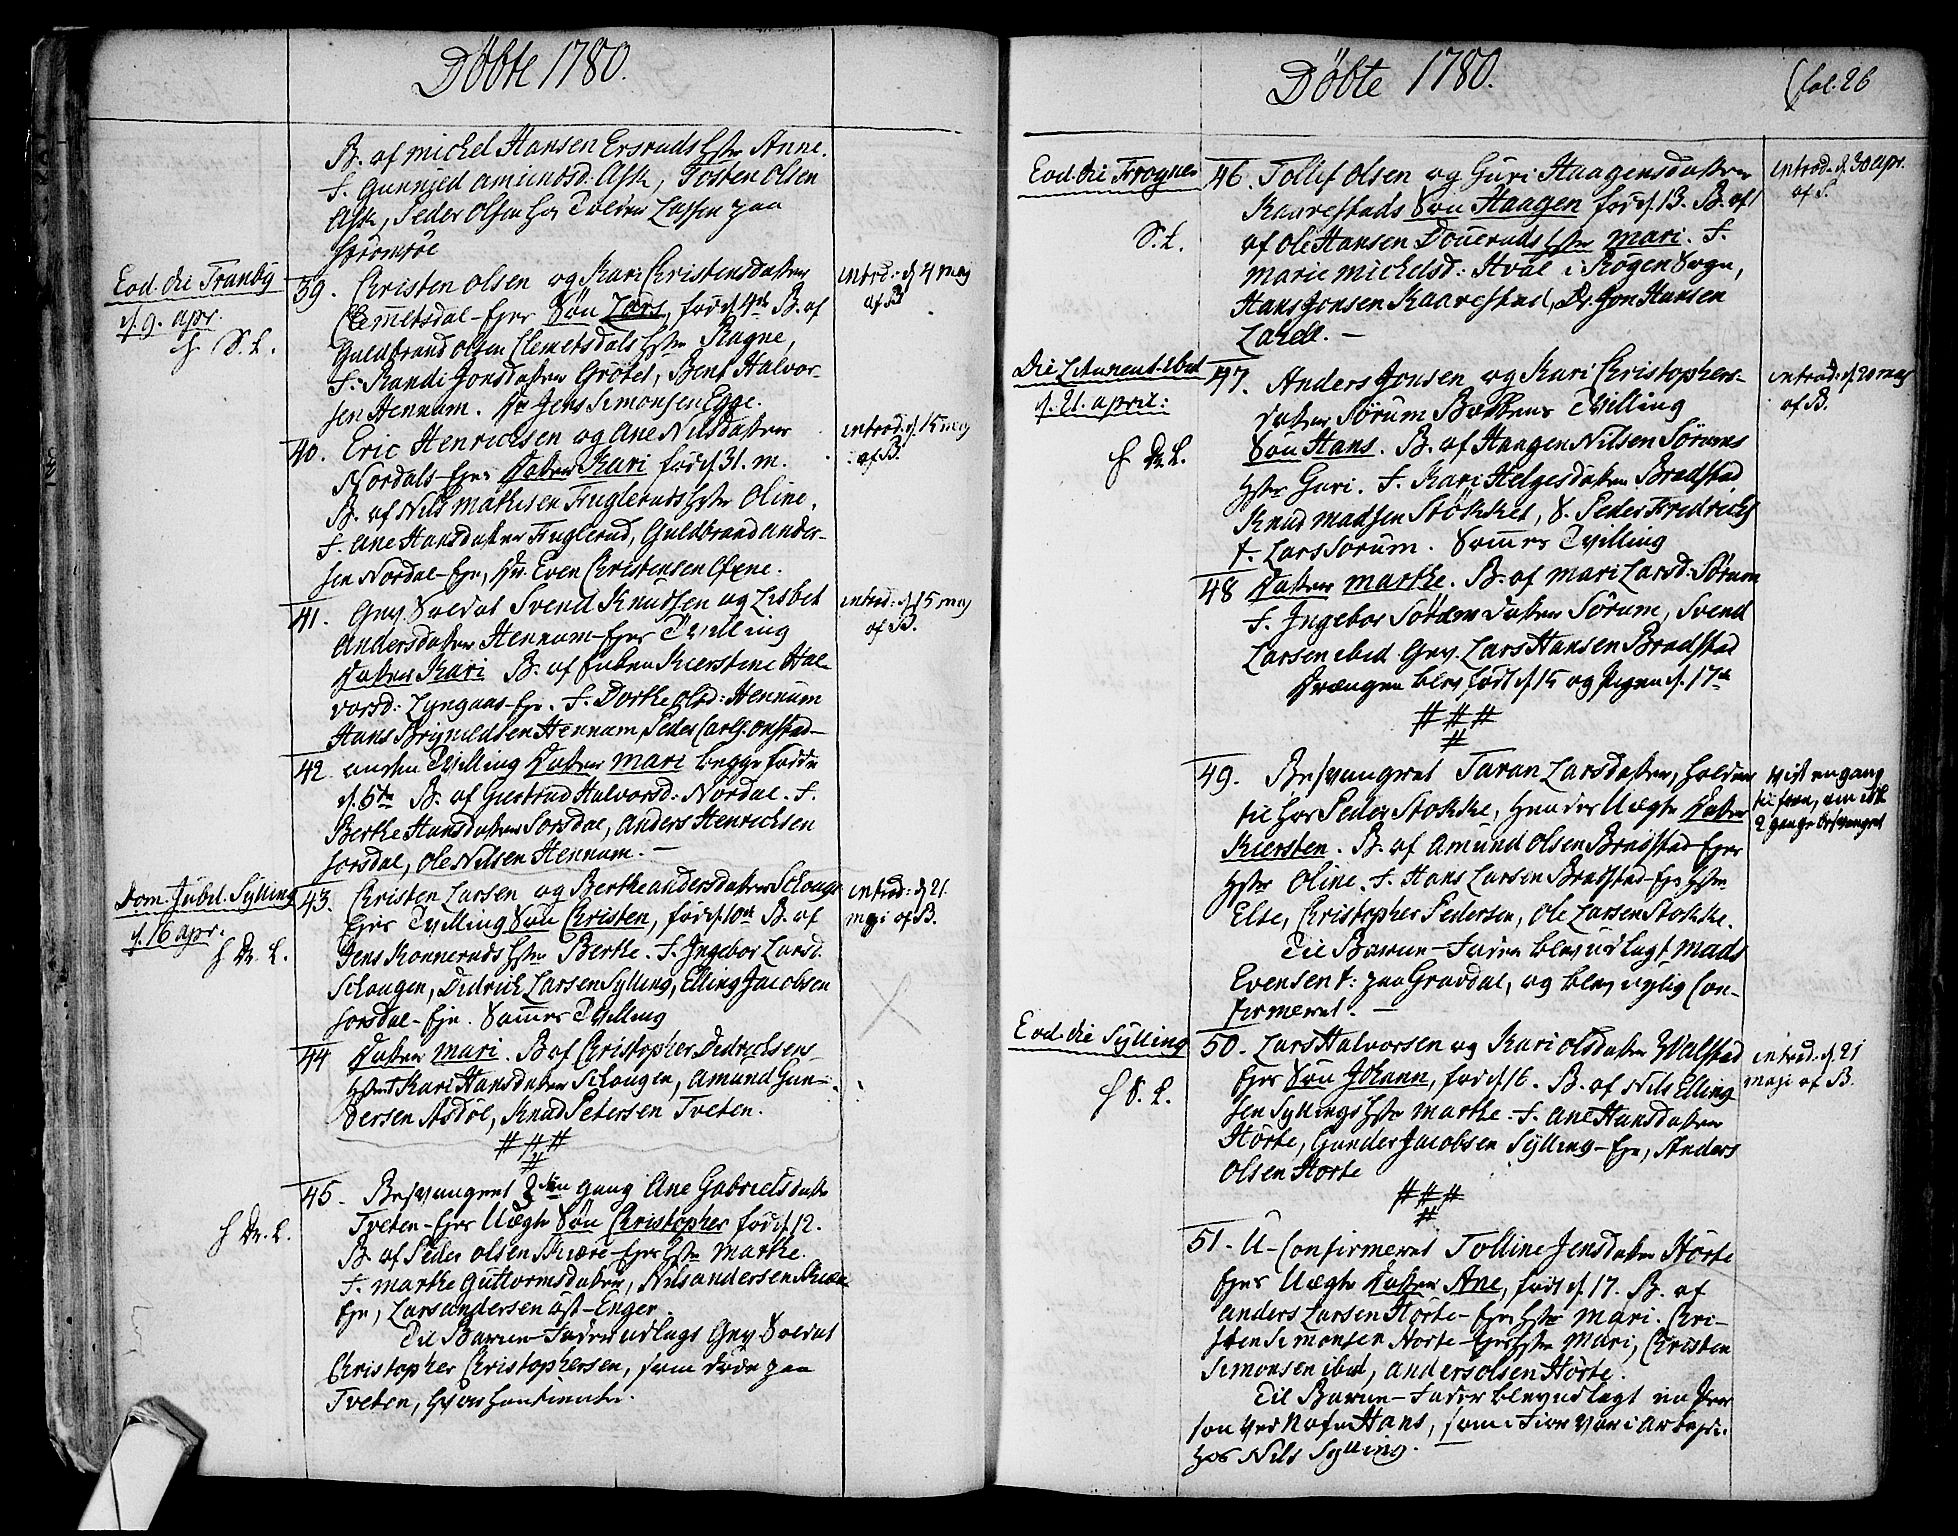 Döbte 1780.
B. af Michel Hansen Ersruds Hstr Anne.
F. Gunnild Amundsd: Ask, Tosten Olsen
Ask, Peder Olsen hos
Eod. die Tranby
d. 9. apr.
S. L.
39. Christen Olsen og Kari Christensdatter
Clemetsdal-Ejer Søn Lars, fød d. 4de B. af
Guldbrand Olsen Clemetsdals Hstr Ragne,
F. Randi Jonsdatter Grötet, Bent Halvor-
sen Hennum. Jens Simonsen Egge.
introd: d. 4 maj
af B.
40. Eric Henrichsen og Ane Nilsdatter
Nordals-Ejer Datter Kari fød d. 31. m.
B. af Nils Mathisen Fuglerud Hstr Oline.
F. Ane Hansdatter Fuglerud, Guldbrand Ander-
sen Nordal-Eje, Even Christensen
introd. d. 15 maj
af B.
41. Gev. Soldat Svend Knudsen og Lisbet
Andersdatter Hennum-Ejer Tvilling
Datter Kari B. af Kierstine Hal-
vorsd: Lyngaas-Eje. F. Dorthe Olsd: Hennum
Hans Brynildsen Hennum, Peder Carls. Onstad-
introd: d. 15 maj
af B.
42. anden Tvilling Datter Mari begge fødde
d. 5te B. af Giertrud Halvorsd: Nordal. F.
Berthe Hansdatter Sorsdal, Anders Henrichsen
Sorsdal, Ole Nilsen Hennum. —
Dom. Jubil. Sylling
d. 16 apr.
L.
43. Christen Larsen og Berthe Andersdatter
Ejer Tvilling Søn Christen, fød d. 10de B. af
Jens Konneruds Hstr Berthe. F. Ingebor Larsd.
Didrich Larsen Sylling, Elling Jacobsen
Sorsdal-Eje. Sammes Tvilling
introd: d. 21.
maji af B.
44 Datter Mari. B. af Christopher Didrichsens
Hstr Kari Hansdatter Amund Gun-
dersen Asdøl, Knud Petersen Tveten.
# # #
#
L.
45. Besvangret gang Ane Gabrielsdatter
Tveten-Ejer Uægte Søn Christopher fød d. 12.
B. af Peder Olsen Skiære-Ejer Hstr Marthe.
F. Marthe Guttormsdatter, Nils Andersen Skiære
Eje, Lars Andersen Øst-Enger.
Til Barne-Fader udlagt Gev. Soldat
Christopher Christophersen, som døde paa
Tveten,
Döbte 1780.
(fol. 26
Eod. die Frogner
S. L.
46. Tollef Olsen og Guri Haagensdatter
Kaarestads Søn Haagen fød d. 13. B. af
af Ole Hansen Hstr Mari. F.
Marie Michelsd: Hval i Røgen Sogn,
Hans Jonsen Kaarestad, Jon Hansen
introd. d. 30 apr.
af S.
d. 21. april:
L.
47. Anders Jonsen og Kari Christophers-
datter Sørum Tvilling
Søn Hans. B. af Haagen Nilsen Sørums
Hstr Guri. F. Kari Helgesdatter Bradstad
Knud Madsen Stokket, S. Peder Fredrichs
F. Lars Sorum. Sammes Tvilling
introd: d. 20 maj
af B.
48 Datter Marthe. B. af Mari Larsd: Sørum
F. Ingebor datter Sørum, Svend
Larsen ibid Gev. Lars Hansen Bradstad
Drengen blev født d. 15 og Pigen d. 17de
# # #
#
49. Besvangret Taran Larsdatter, holder
til hos Peder Stokke, hendes Uægte Datter
Kiersten. B. af Amund Olsen Bradstad Ejer
Hstr Oline. F. Hans Larsen Bradstad-Eje Hstr
Else, Christopher Pedersen, Ole Larsen Stokke.
Til Barne-Fader blev udlagt Mads
Evensen t: paa Gravdal, og blev nylig Con-
firmeret. —
vist en gang
til forn,
2 gange besvangret
Eod. die Sylling
S. L.
50. Lars Halvorsen og Kari Olsdatter Walstad
Ejer Søn Johann, fød d. 16. B. af Nils Elling
sen Syllings Hstr Marthe. F. Ane Hansdatter
Hörte, Gunder Jacobsen Sylling-Eje, Anders
Olsen Horte
introd. d. 21
maji af B.
# # #
#
51. U-Confirmeret Tolline Jensdatter Hörte
Ejer Uægte Datter Ane, født d. 17. B. af
Anders Larsen Hörte-Ejer Hstr Mari. Chri-
sten Simonsen Horte-Ejer Hstr Mari, Christen
Simonsen ibid, Anders Olsen Hörte.
Til Barne-Fader blev udlagt en Per
son ved Nafn Hans, som i Fior var i Arbejde
hos Nils Sylling.